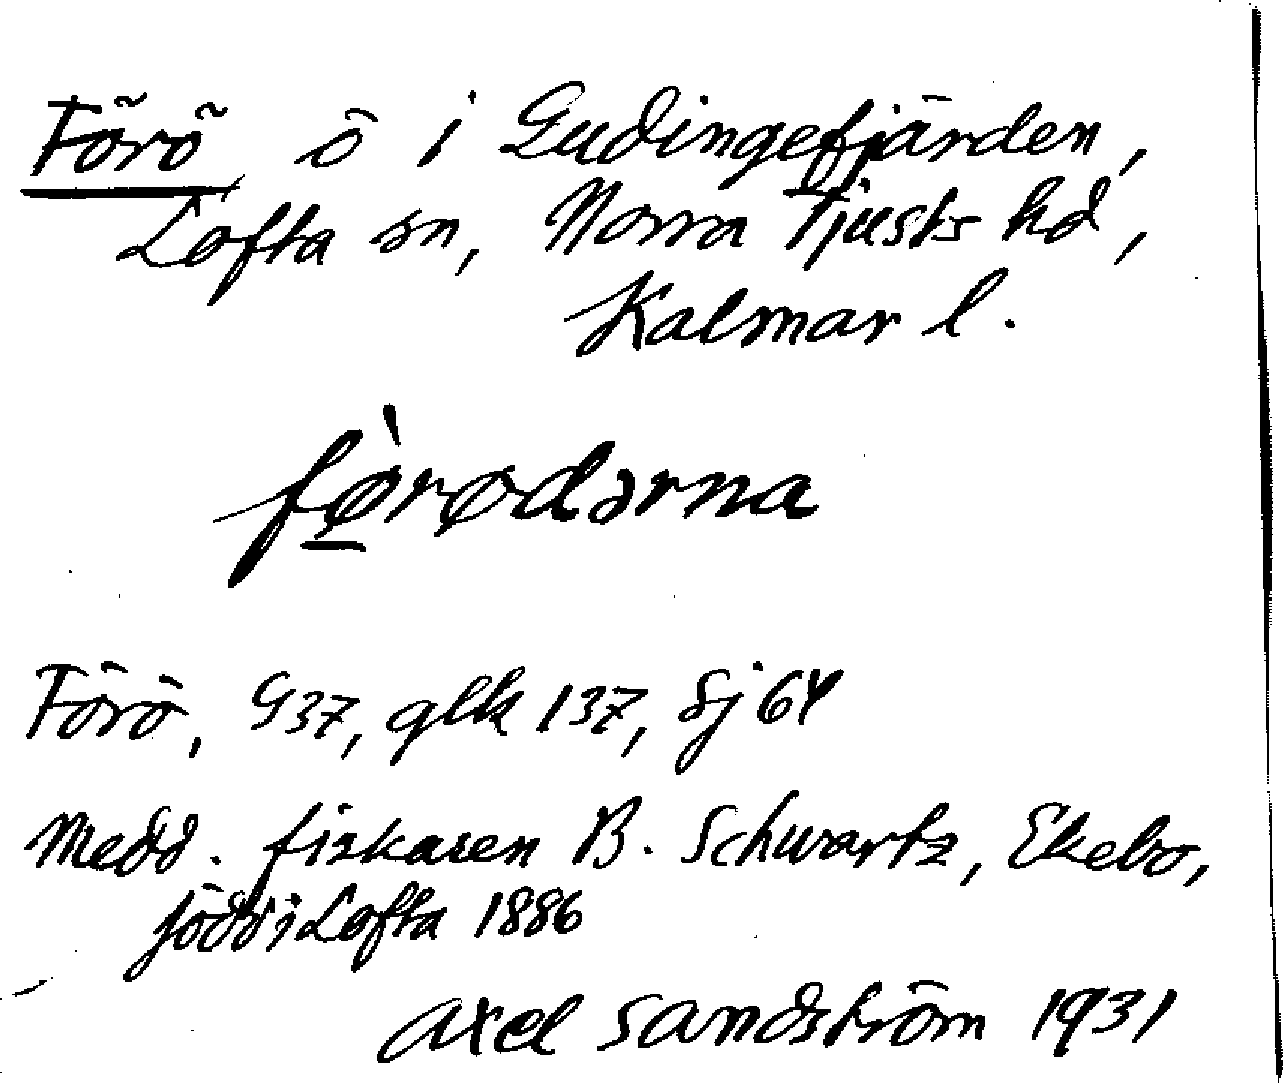 Förö, ö i Gudingefjärden,
Lofta sn, Norra Tjusts hd,
Kalmar l.
fø̱̀rødərna
Förö, G37, glk 137, Sj 64
Medd. fiskaren B. Schwartz, Ekebo,
född i Lofta 1886
Axel Sandström 1931